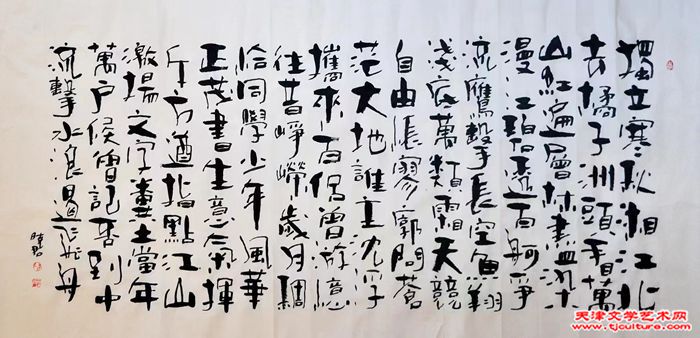 獨立寒秋湘江北
去橘子洲頭看萬
山紅遍層林盡染
漫江碧透百舸爭
流鷹擊長空魚翔
淺底萬類霜天競
自由悵寥廓問蒼
茫大地誰主沉浮
攜來百侶曾游憶
往昔崢嶸歲月稠
恰同學少年風華
正茂書生意氣揮
斥方遒指點江山
激揚文字糞土當年
萬戶侯曾記否到中
流擊水浪遏飛舟
天津文学艺术网
www.tjculture.com